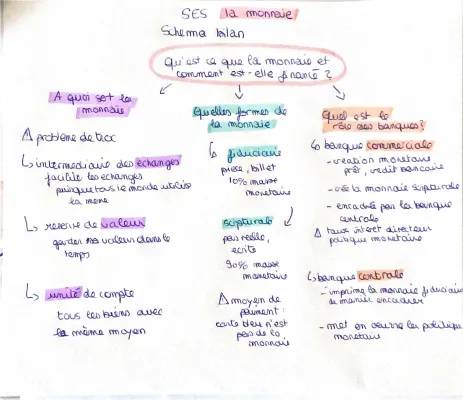 SES la monnaie
Schema bilan
Qu'est ce que la monnaie et
comment est-elle financé ?
A quoi sert la
monnaie
△ problème de troc
↳ intermediaire des échanges
facilite les échanges
puisque tous le monde utilise
la même
↳ reserve de valeur
garder sa valeur dans le
temps
↳ unité de compte
tous les biens avec
le même moyen
Quelles formes de
la monnaie
↳ fiduciaire
pièce, billet
10% masse
monétaire
scripturale
pas réelle,
ecrite
90% masse
monetaire
△ moyen de
paiement :
carte bleu n'est
pas de la
monnaie
Quel est le
rôle des banques?
↳ banque commerciale
- creation monetaire
prêt, credit bancaire
- crée la monnaie scripturale
- encadré par la banque
centrale
△ taux interet directeur
politique monetaire
↳ banque centrale
- imprime la monnaie fiduciaire
de manière encadrer
- met en oeuvre la politique
monetaire